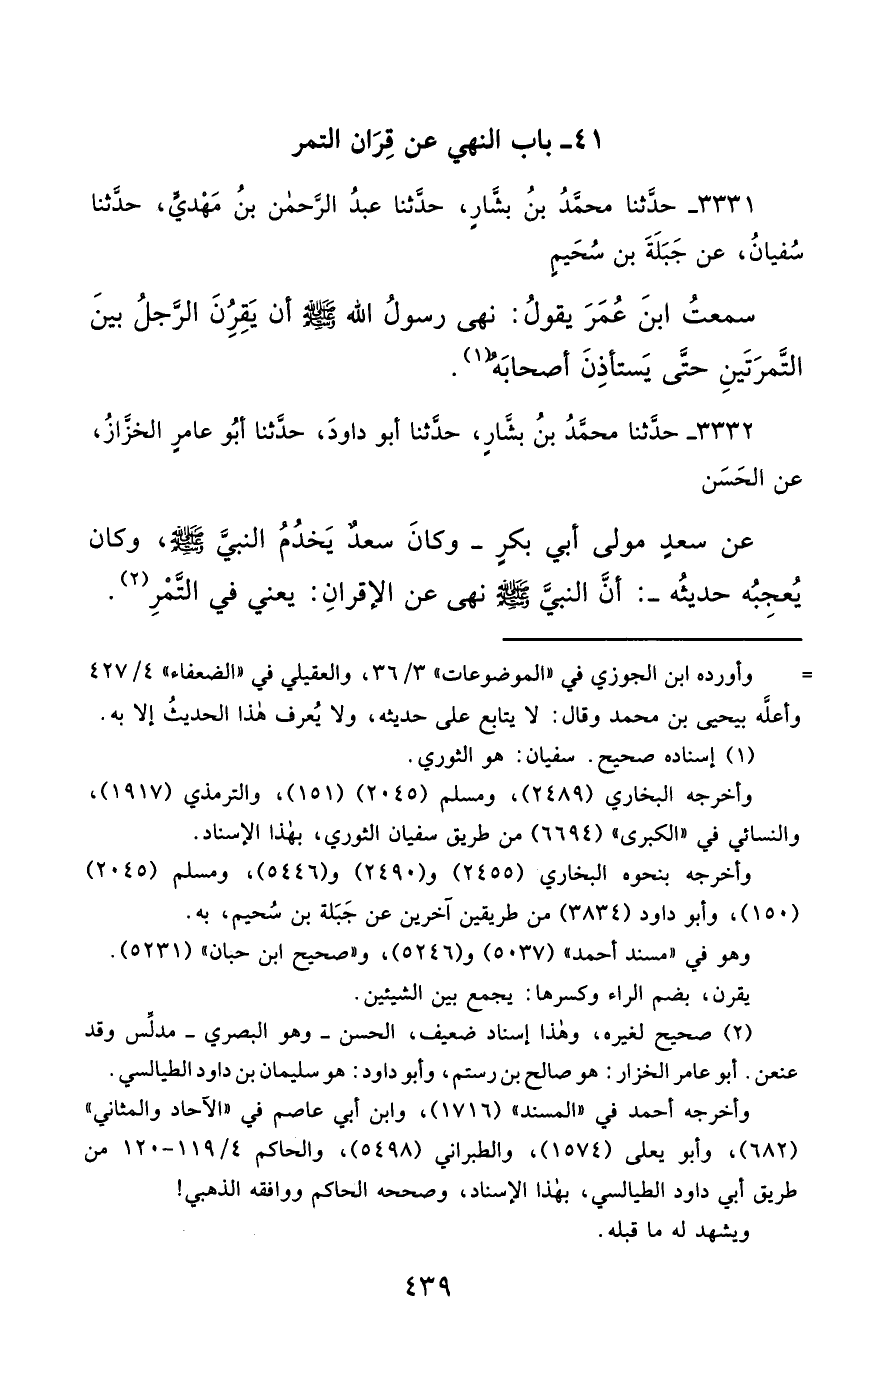 ٤١ـ باب النهي عن قِرَان التمر
٣٣٣١ـ حدَّثنا محمَّدُ بنُ بشَّارٍ، حدَّثنا عبدُ الرَّحمٰن بنُ مَهْديٍّ، حدَّثنا
سُفيانُ، عن جَبَلَةَ بن سُحَيمٍ
سمعتُ ابنَ عُمَرَ يقولُ: نهى رسولُ الله ﷺ أن يَقِرُنَ الرَّجلُ بينَ
التَّمرَتَينِ حتَّى يَستأذِنَ أصحابَهُ(١).
٣٣٣٢ـ حدَّثنا محمَّدُ بنُ بشَّارٍ، حدَّثنا أبو داودَ، حدَّثنا أبُو عامرٍ الخزَّازُ،
عن الحَسَن
عن سعدٍ مولى أبي بكرٍ ـ وكانَ سعدٌ يَخدُمُ النبيَّ ﷺ، وكان
يُعجِبُه حديثُه ـ: أنَّ النبيَّ ﷺ نهى عن الإقرانِ: يعني في التَّمْرِ(٢).
= وأورده ابن الجوزي في «الموضوعات» ٣/ ٣٦، والعقيلي في «الضعفاء» ٤/ ٤٢٧
وأعلَّه بيحيى بن محمد وقال: لا يتابع على حديثه، ولا يُعرف هٰذا الحديثُ إلا به.
(١) إسناده صحيح. سفيان: هو الثوري.
وأخرجه البخاري (٢٤٨٩)، ومسلم (٢٠٤٥) (١٥١)، والترمذي (١٩١٧)،
والنسائي في «الكبرى» (٦٦٩٤) من طريق سفيان الثوري، بهٰذا الإسناد.
وأخرجه بنحوه البخاري (٢٤٥٥) و(٢٤٩٠) و(٥٤٤٦)، ومسلم (٢٠٤٥)
(١٥٠)، وأبو داود (٣٨٣٤) من طريقين آخرين عن جَبَلة بن سُحيم، به.
وهو في «مسند أحمد» (٥٠٣٧) و(٥٢٤٦)، و«صحيح ابن حبان» (٥٢٣١).
يقرن، بضم الراء وكسرها: يجمع بين الشيئين.
(٢) صحيح لغيره، وهٰذا إسناد ضعيف، الحسن ـ وهو البصري ـ مدلِّس وقد
عنعن. أبو عامر الخزار: هو صالح بن رستم، وأبو داود: هو سليمان بن داود الطيالسي.
وأخرجه أحمد في «المسند» (١٧١٦)، وابن أبي عاصم في «الآحاد والمثاني»
(٦٨٢)، وأبو يعلى (١٥٧٤)، والطبراني (٥٤٩٨)، والحاكم ٤/ ١١٩-١٢٠ من
طريق أبي داود الطيالسي، بهٰذا الإسناد، وصححه الحاكم ووافقه الذهبي!
ويشهد له ما قبله.
٤٣٩